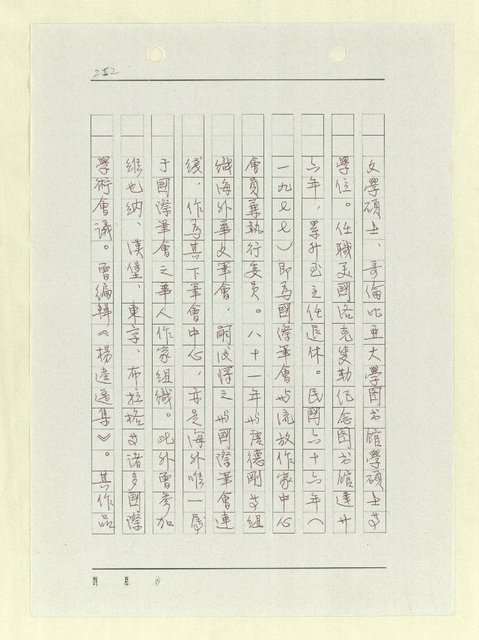 252
文學碩士、哥倫比亞大學图书館學碩士等
學位。任職美國洛克斐勒纪念图书館達廿
六年，累升至主任退休。民國六十六年（
一九七七）即為國際筆會出流放作家中心
會員兼執行委員。八十一年出唐德剛等組
織海外華文筆會，嗣後將之出國際筆會連
线，作為其下筆會中心，亦是海外唯一屬
于國際筆會之華人作家組織。此外曾参加
維也纳、漢堡、東京、布拉格等諸多國際
學術會議。曾编辑《楊逵選集》。其作品